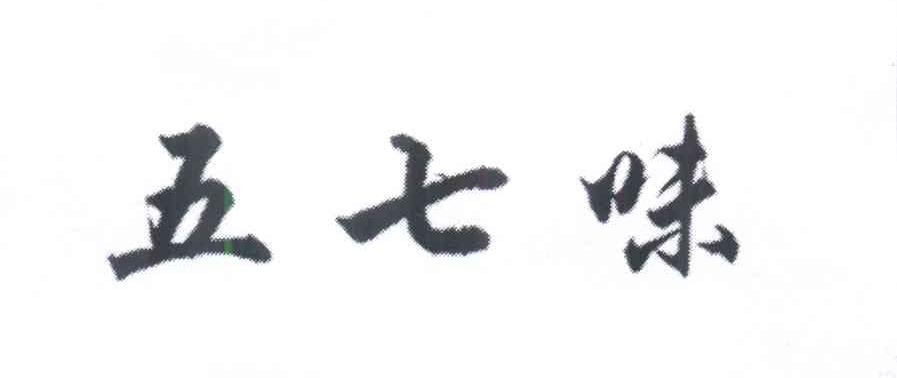 五七味